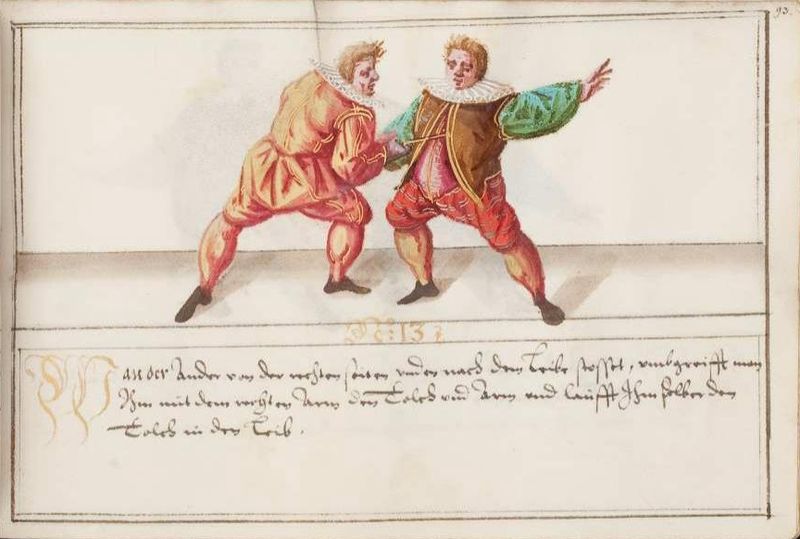 93.
N: 13
Wan der Ander von der rechten seiten unden nach dem Leibe stosset, umbgreifft man
Ihm mit dem rechten Arm den Tolch und Arm und laufft Ihm selber den
Tolch in den Leib.